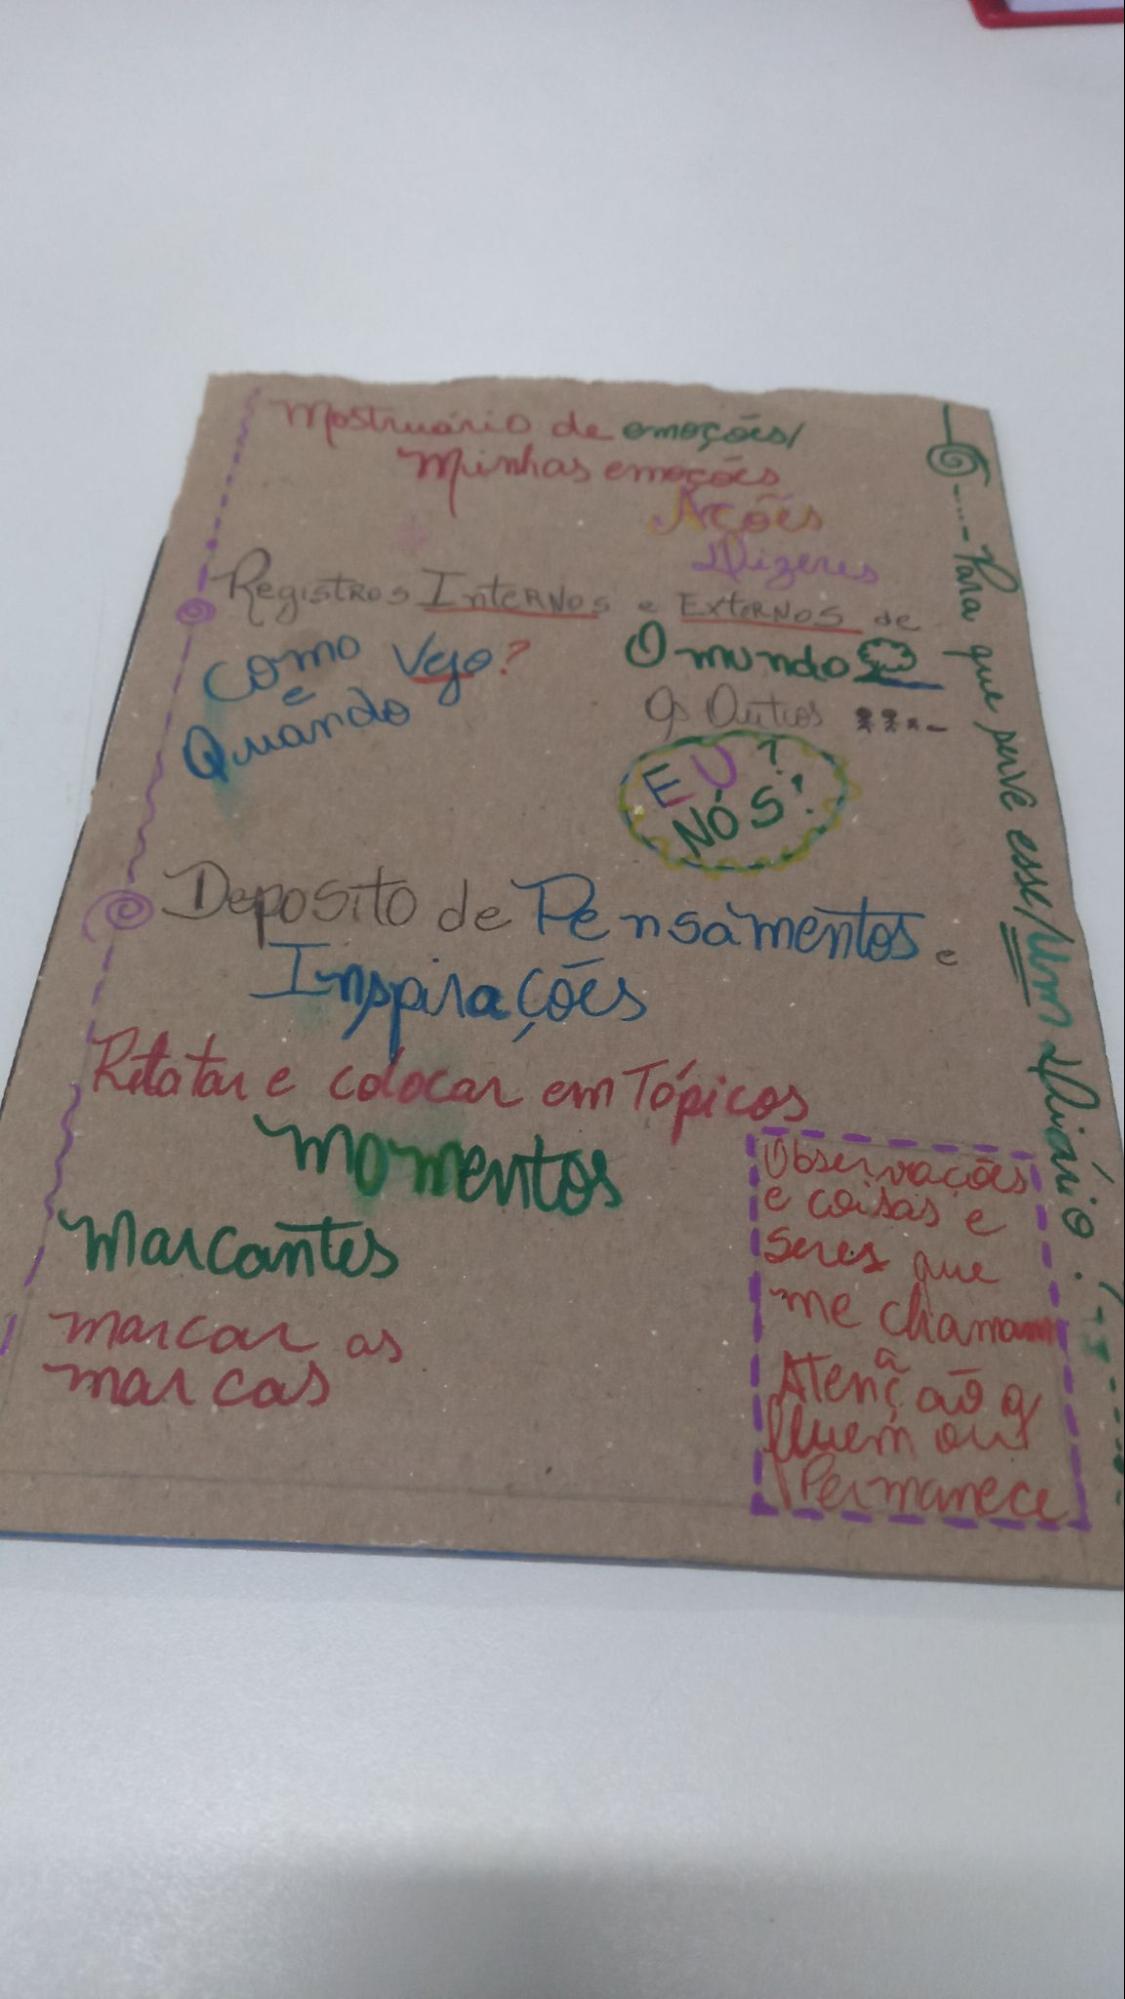 Mostruário de emoções/
Minhas emoções
Ações
Dizeres
Registros Internos e Externos de
Como Vejo?
e
Quando
O mundo
Os Outros
EU?
NÓS!
Deposito de Pensamentos e
Inspirações
Relatar e colocar em Tópicos
Momentos
Marcantes
marcar as
marcas
Observações
e coisas e
seres que
me chamam
a
Atenção q
fluem ou
Permanece
Para que serve esse/Um Diário?